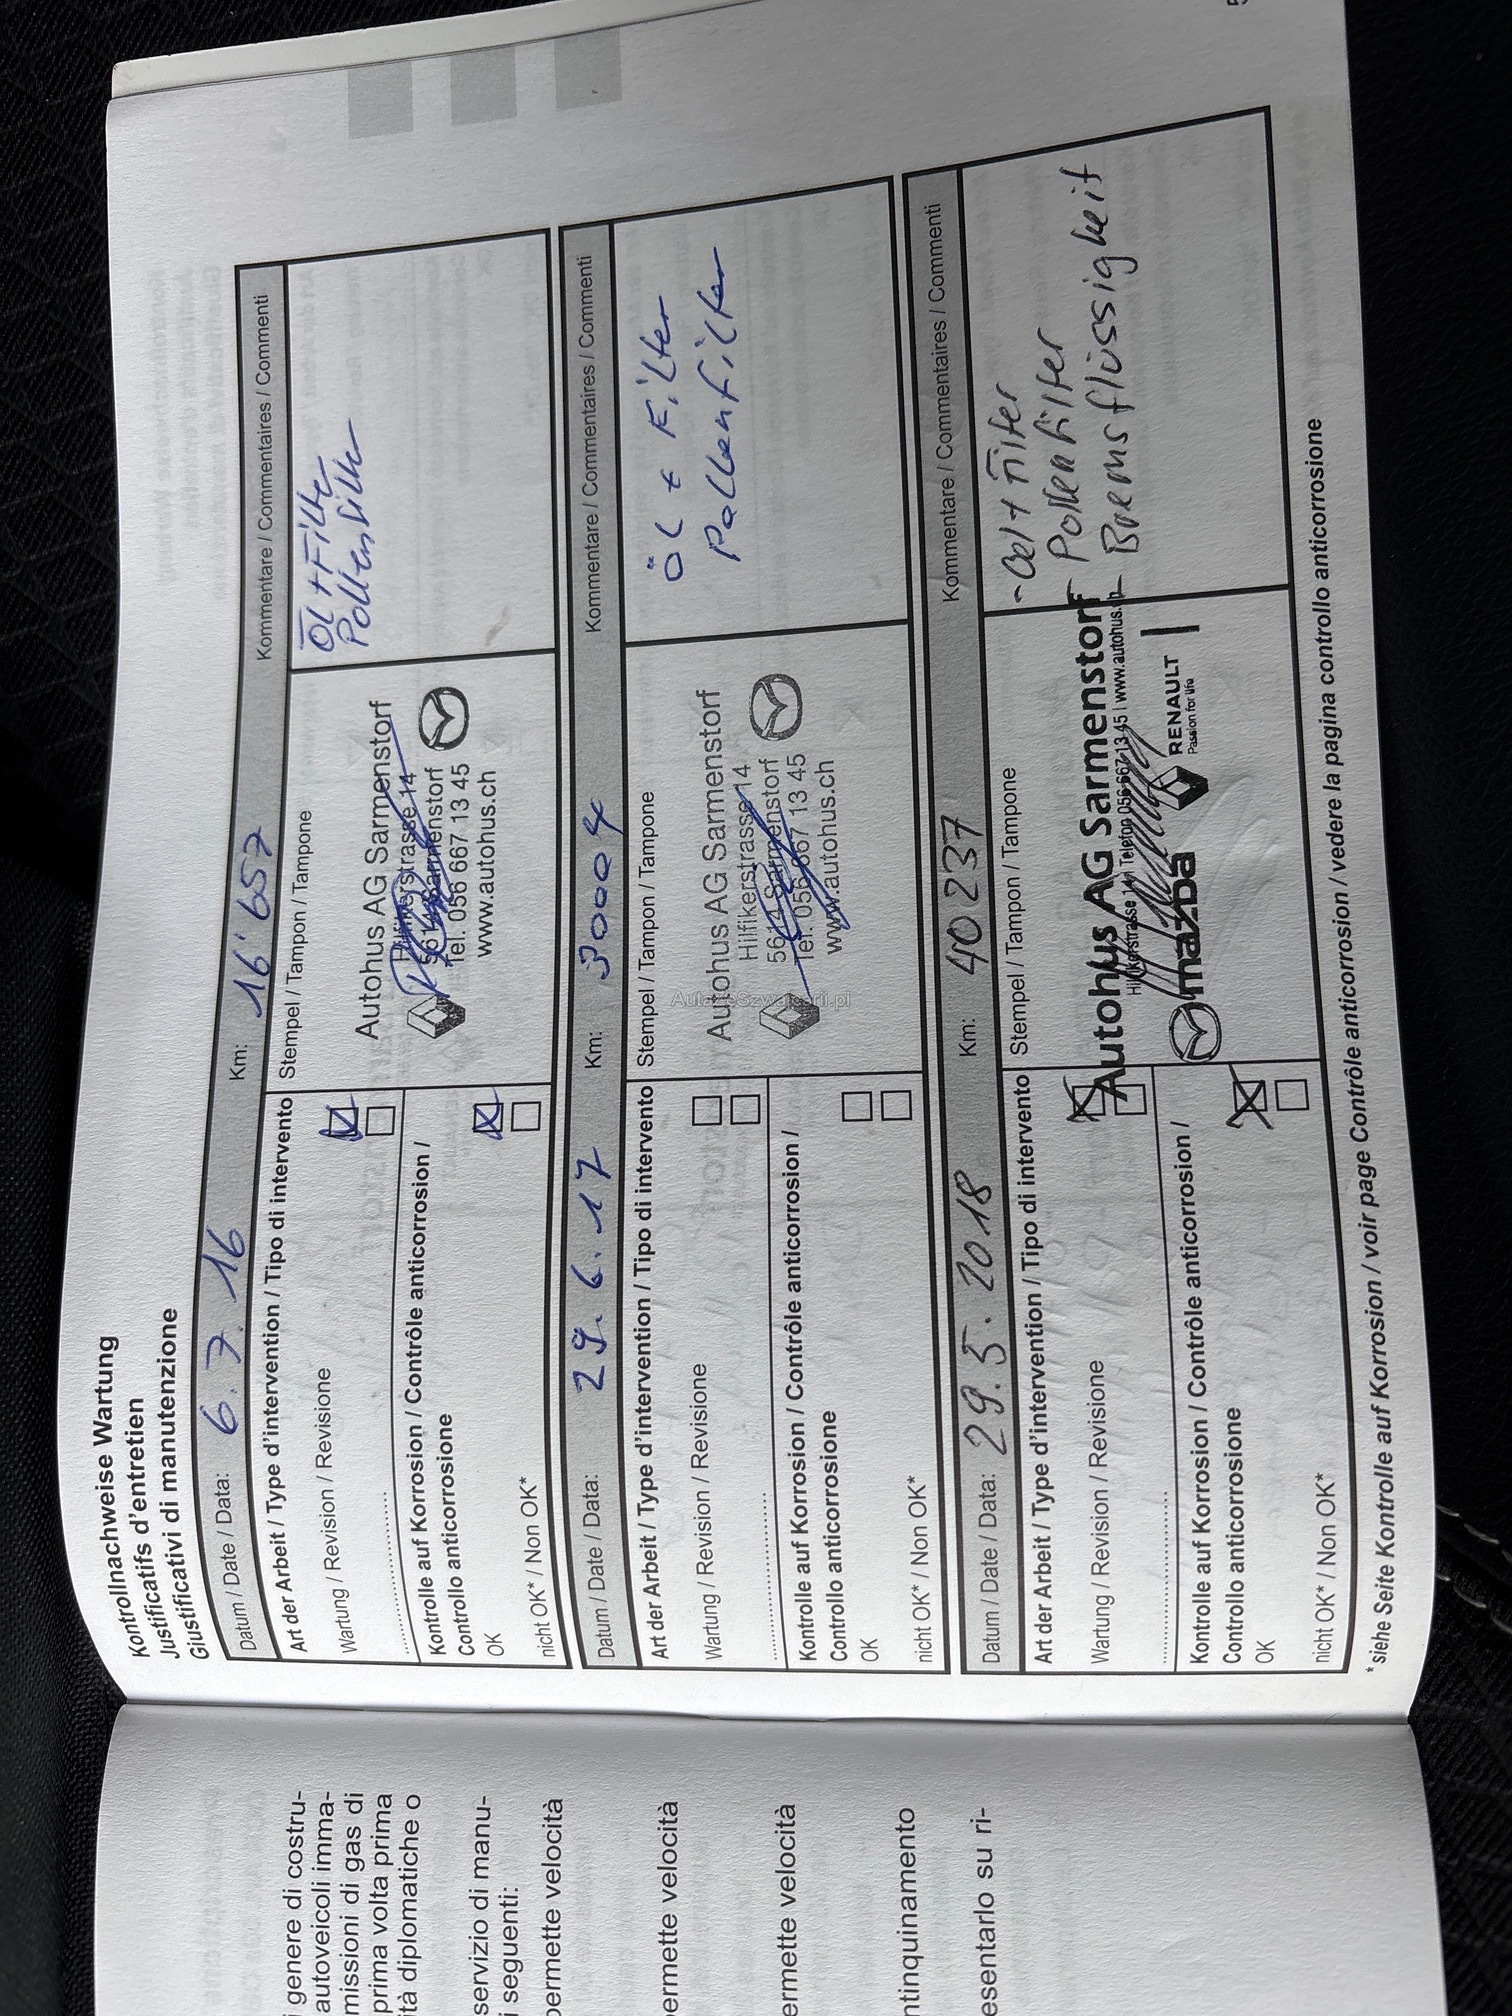 Kontrollnachweise Wartung
Justificatifs d'entretien
Giustificativi di manutenzione
Datum / Date / Data: 6.7.16 Km: 16'657 Kommentare / Commentaires / Commenti
Art der Arbeit / Type d'intervention / Tipo di intervento
Stempel / Tampon / Tampone
Wartung / Revision / Revisione
Kontrolle auf Korrosion / Contrôle anticorrosion /
Controllo anticorrosione
OK
nicht OK* / Non OK*
Autohus AG Sarmenstorf
Hilfikerstrasse 14
5614 Sarmenstorf
Tel. 056 667 13 45
www.autohus.ch
ÖL + Filter
Pollenfilter
Datum / Date / Data: 29.6.17 Km: 30004 Kommentare / Commentaires / Commenti
Art der Arbeit / Type d'intervention / Tipo di intervento
Stempel / Tampon / Tampone
Wartung / Revision / Revisione
Kontrolle auf Korrosion / Contrôle anticorrosion /
Controllo anticorrosione
OK
nicht OK* / Non OK*
Autohus AG Sarmenstorf
Hilfikerstrasse 14
5614 Sarmenstorf
Tel. 056 667 13 45
www.autohus.ch
AutazeSzwajcarii.pl
ÖL + Filter
Pollenfilter
Datum / Date / Data: 29.5.2018 Km: 40237 Kommentare / Commentaires / Commenti
Art der Arbeit / Type d'intervention / Tipo di intervento
Stempel / Tampon / Tampone
Wartung / Revision / Revisione
Kontrolle auf Korrosion / Contrôle anticorrosion /
Controllo anticorrosione
OK
nicht OK* / Non OK*
Autohus AG Sarmenstorf
Hilfikerstrasse 14 | Telefon 056 667 13 45 | www.autohus.ch
mazda
RENAULT
Passion for life
- Oel + Filter
- Pollenfilter
- Bremsflüssigkeit
* siehe Seite Kontrolle auf Korrosion / voir page Contrôle anticorrosion / vedere la pagina controllo anticorrosione
i genere di costru-
autoveicoli imma-
missioni di gas di
prima volta prima
ità diplomatiche o
servizio di manu-
i seguenti:
permette velocità
ermette velocità
ermette velocità
ntinquinamento
esentarlo su ri-